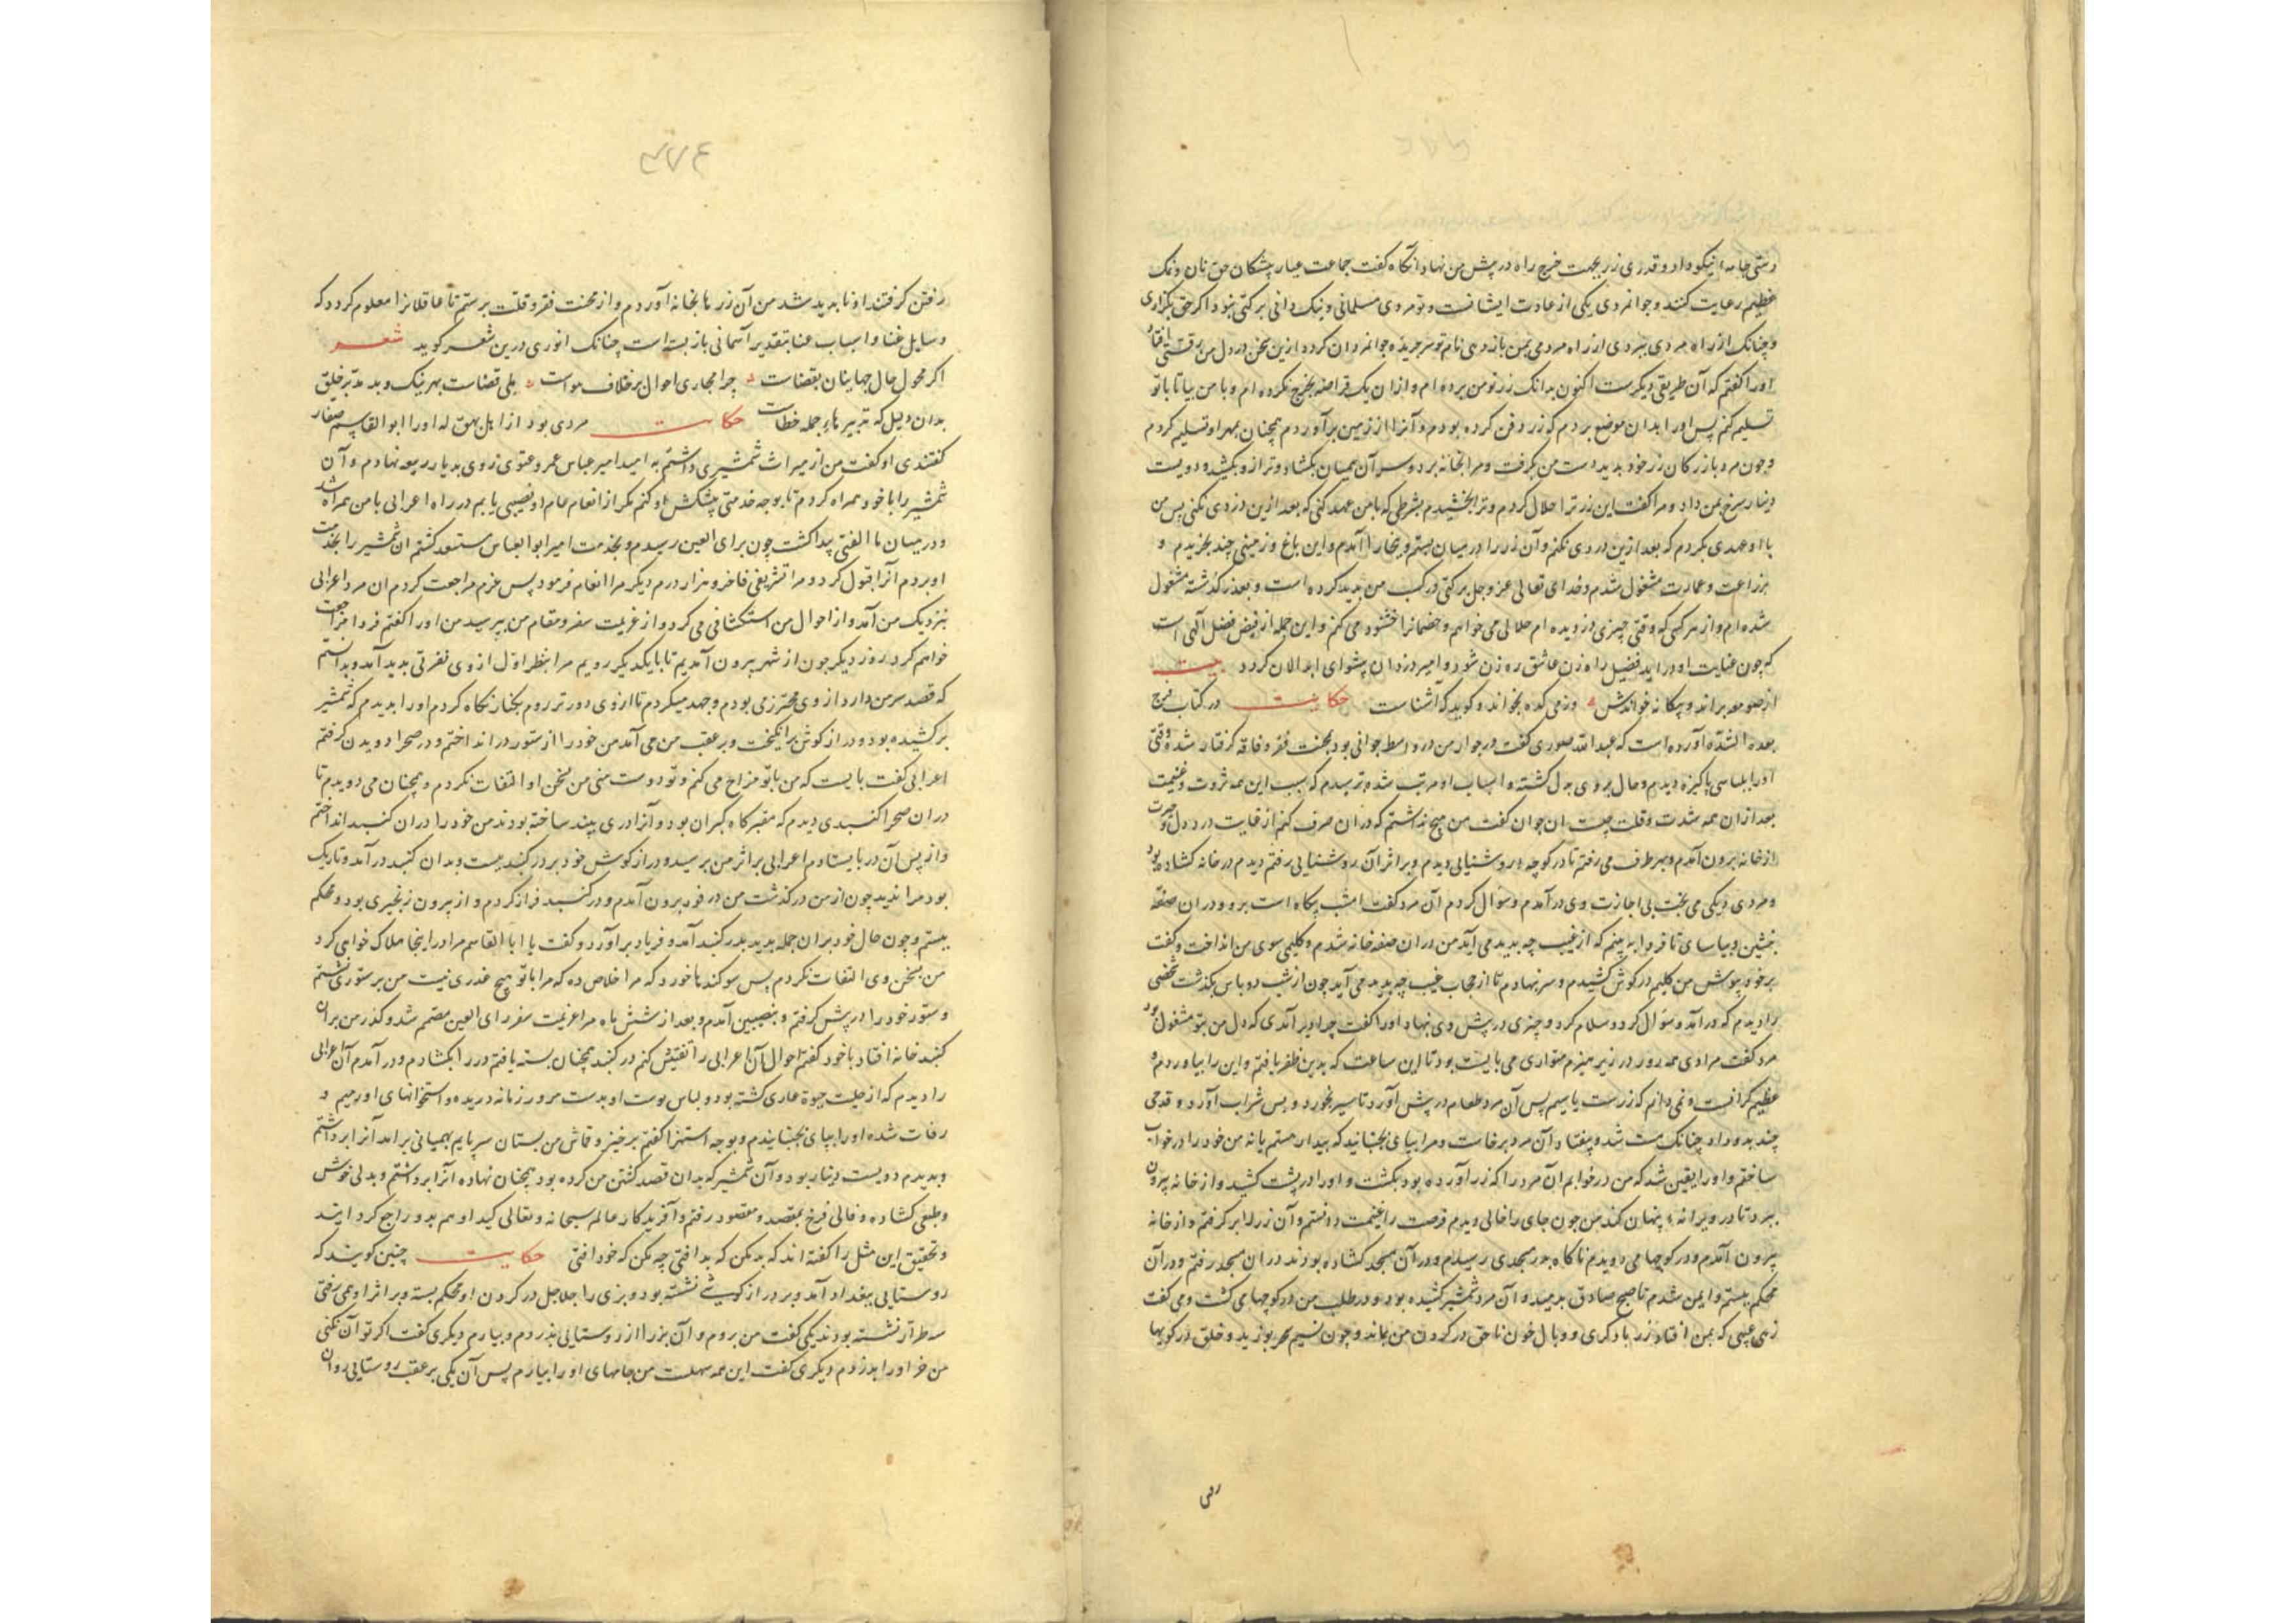 دستی جامه نیکو داد و قدری زر بجهت خرج راه در پیش من نهاد و آنگاه گفت جماعت عیار پیشکان حق نان و نمک
عظیم رعایت کنند و جوانمردی یکی از عادت ایشانست و تو مردی مسلمانی و نیک دانی
و چنانک از راه مردی
اورا گفتم که آن طریقی دیگرست اکنون بدانک زر تو من برده ام و ازان یک قراضه بخرج نکرده ام و با من بیا تا با تو
تسلیم کنم پس اورا بدان موضع بردم که زر دفن کرده بودم و آنرا از زمین برآوردم همچنان بمهر او تسلیم کردم
و چون مرد بازرکان زر خود بدید دست من بگرفت و مرا بخانه برد و سر آن همیان بکشاد و ترازو بکشید و دویست
دینار سرخ بمن داد و مرا گفت این زر ترا حلال کردم و ترا بخشیدم بشرطی که با من عهد کنی که بعد ازین دزدی نکنی پس من
با او عهدی بکردم که بعد ازین دزدی نکنم و آن زر را در میان بستم و ببخارا آمدم و این باغ و زمینی چند بخریدم و
بزراعت و عمارت مشغول شدم و خدای تعالی عز و جل برکتی در کسب من پدید کرده است و بعذر کذشته مشغول
شده ام و از هر کسی که وقتی چیزی دزدیده ام حلالی می خواهم و خصمانرا خشنود می کنم و این جمله از فیض فضل الهی است
که چون عنایت او در آید فضیل راه زن عاشق ره زن شود و امیر دزدان پیشوای ابدالان کردد بیت
از صومعه براند و بیکانه خواندش وز میکده بخواند و کوید که آشناست حکایت در کتاب فرج
بعد الشده آورده است که عبدالله صوری گفت در جوار من در واسط جوانی بود بمحنت فقر و فاقه گرفتار شده وقتی
اورا لباسی پاکیزه دیدم و حال بر وی بدل کشته و اسباب او مرتب شده پرسیدم که سبب این همه ثروت و غنیمت
بعد ازان همه شدت و قلت چیست ان جوان گفت من هیچ نداشتم که دران صرف کنم از غایت درد دل و حیرت
از خانه برون آمدم و بهر طرف می رفتم تا در کوچه روشنایی دیدم و بر اثر آن روشنایی رفتم دیدم در خانه کشاده بود
و مردی دیکی می پخت بی اجازت وی در آمدم و سؤال کردم آن مرد گفت امشب بیکاه است برو و دران صفه
بنشین و بیاسای تا فردا به بینم که از غیب چه پدید می آید من دران صفه خانه شدم و کلیمی سوی من انداخت و گفت
بر خود پوش من کلیم در کوش کشیدم و سر نهادم تا از حجاب غیب چه پدید می آید چون از شب دو پاس بکذشت شخصی
را دیدم که درآمد و سؤال کرد و سلام کرد و چیزی در پیش وی نهاد اورا گفت چرا دیر آمدی که دل من بتو مشغول بود
مرد گفت مرادی همه روز در زیر هیزم متواری می بایست بود تا این ساعت که بدین ظفر یافتم و این را بیاوردم و
عظیم گرانست و نمی دانم که زرست یا سیم پس آن مرد طعام در پیش آورد تا سیر بخورد و پس شراب آورد و قدحی
چند بدو داد چنانک مست شد و بیفتاد آن مرد برخاست و مرا بپای بجنبانید که بیدار هستم یا نه من خود را در خواب
ساختم و اورا یقین شد که من در خوابم آن مرد را که زر آورده بود بکشت و اورا در پشت کشید و از خانه بیرون
ببرد تا در ویرانه پنهان کند من چون جای را خالی دیدم فرصت را غنیمت دانستم و آن زر را برکرفتم و از خانه
بیرون آمدم و در کوچها می دویدم ناکاه بدر مسجدی رسیدم و در آن مسجد کشاده بودند دران مسجد رفتم و در آن
محکم ببستم و ایمن شدم تا صبح صادق بدمید و آن مرد شمشیر کشیده بود و در طلب من در کوچها می گشت و می گفت
زهی عجبی که بمن افتاد زر باد کری و وبال خون ناحق در کردن من بماند و چون نسیم سحر بوزید و خلق در کویها
رفتن
۳۷۴
رفتن کرفتند او نا پدید شد من آن زر ها بخانه آوردم و از محنت فقر و قلت برستم تا عاقلانرا معلوم کردد که
وسایل غنا و اسباب عنا بتقدیر آسمانی باز بسته است چنانک انوری درین شعر کوید شعر
اگر محول حال جهانیان نه قضاست چرا مجاری احوال بر خلاف هواست بلی قضاست بهر نیک و بد مدبر خلق
بدان دلیل که تدبیرهاء جمله خطاست حکایت مردی بود از اهل که اورا ابوالقاسم صفار
گفتندی او گفت من از میراث شمشیری داشتم به امید امیر عباس عمرو غنوی روی بدیار ربیعه نهادم و آن
شمشیر را با خود همراه کردم تا بوجه خدمتی پیشکش او کنم مکر از انعام عام او نصیبی یابم در راه اعرابی با من همراه شد
و در میان ما الفتی پیدا کشت چون برای العین رسیدم و بخدمت امیر ابو العباس مستسعد کشتم ان شمشیر را بخدمت
او بردم آنرا قبول کرد و مرا تشریفی فاخر و هزار درم دیکر مرا انعام فرمود پس عزم مراجعت کردم ان مرد اعرابی
بنزدیک من آمد و از احوال من استکشافی می کرد و از عزیمت سفر و مقام من بپرسید من اورا گفتم فردا مراجعت
خواهم کرد روز دیکر چون از شهر بیرون آمدیم تا با یکدیکر رویم مرا بنظر اول ازوی نفرتی پدید آمد و بدانستم
که قصد سر من دارد از وی محترز می بودم و جهد میکردم تا ازوی دورتر روم بکبار نکاه کردم اورا بدیدم که شمشیر
برکشیده بود و دراز کوش برانکیخت و بر عقب من می آمد من خود را از ستور در انداختم و در صحرا دویدن کرفتم
اعرابی گفت بایست که من با تو مزاح می کنم و تو دوست منی من بسخن او التفات نکردم و همچنان می دویدم تا
دران صحرا کنبدی دیدم که مقبر کاه کبران بود و آنرا دری بیند ساخته بودند من خود را دران کنبد انداختم
و از پس آن در بایستادم اعرابی بر اثر من برسید و دراز کوش خود بر در کنبد ببست و بدان کنبد درآمد و تاریک
بود مرا ندید چون از من درکذشت من در فور برون آمدم و در کنبد فراز کردم و از بیرون زنجیری بود و محکم
ببستم و چون حال خود بران جمله بدید بدر کنبد آمد و فریاد برآورد و گفت یا ابا القاسم مرا در اینجا هلاک خواهی کرد
من بسخن وی التفات نکردم پس سوکند ها خورد که مرا خلاص ده که مرا با تو هیچ غدری نیست من بر ستوری نشستم
و ستور خود را در پیش کرفتم و بنصیبین آمدم و بعد از شش ماه مرا عزیمت سفر رای العین مصمم شد و کذر من بران
کنبد خانه افتاد با خود گفتم احوال آن اعرابی را تفتیش کنم در کنبد همچنان بسته یافتم در را بکشادم و در آمدم آن اعرابی
را دیدم که از حلیت حیوة عاری کشته بود و لباس پوست او بدست مرور زمانه دریده و استخوانهای او رمیم و
رفات شده اورا بپای بجنبانیدم و بوجه استهزا گفتم برخیز و قماش من بستان سر پایم بهمیانی برآمد آنرا برداشتم
و بدیدم دویست دینار بود و آن شمشیر که بدان قصد کشتن من کرده بود همچنان نهاده آنرا برداشتم و بدلی خوش
و طبعی کشاده و فالی فرخ بمقصد و مقصود رفتم و آفریدکار عالم سبحانه و تعالی کید او هم بدو راجع کردانید
و تحقیق این مثل را گفته اند که بد مکن که بد افتی چه مکن که خود افتی حکایت چنین کویند که
روستایی ببغداد آمد و بر دراز کوشی نشسته بود و بزی را جلاجل در کردن او محکم بسته و بر اثر او همی رفتی
سه طرار نشسته بودند یکی گفت من بروم و آن بز را از روستایی بدزدم و بیارم دیکری گفت اکر تو آن بکنی
من خر اورا بدزدم دیکری گفت این همه سهلست من جامهای او را بیارم پس آن یکی بر عقب روستایی روان